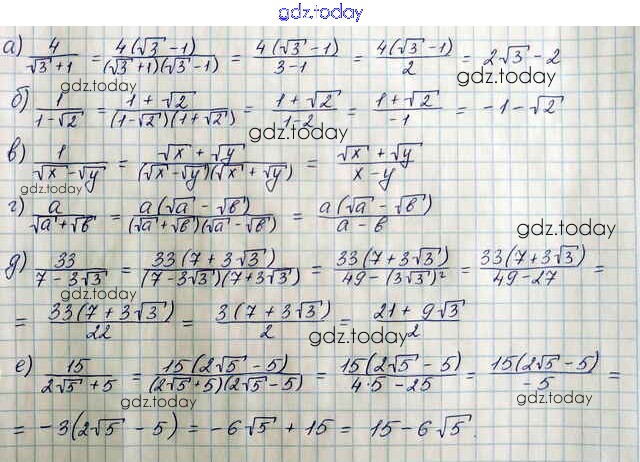 gdz.today
а) 4/(√3+1) = 4(√3-1)/((√3+1)(√3-1)) = 4(√3-1)/(3-1) = 4(√3-1)/2 = 2√3-2
gdz.today gdz.today
б) 1/(1-√2) = (1+√2)/((1-√2)(1+√2)) = (1+√2)/(1-2) = (1+√2)/(-1) = -1-√2
gdz.today
в) 1/(√x-√y) = (√x+√y)/((√x-√y)(√x+√y)) = (√x+√y)/(x-y)
gdz.today
г) a/(√a+√в) = a(√a-√в)/((√a+√в)(√a-√в)) = a(√a-√в)/(a-в)
gdz.today
д) 33/(7-3√3) = 33(7+3√3)/((7-3√3)(7+3√3)) = 33(7+3√3)/(49-(3√3)²) = 33(7+3√3)/(49-27) =
gdz.today
= 33(7+3√3)/22 = 3(7+3√3)/2 = (21+9√3)/2
gdz.today
е) 15/(2√5+5) = 15(2√5-5)/((2√5+5)(2√5-5)) = 15(2√5-5)/(4·5-25) = 15(2√5-5)/(-5) =
gdz.today gdz.today
= -3(2√5-5) = -6√5+15 = 15-6√5.